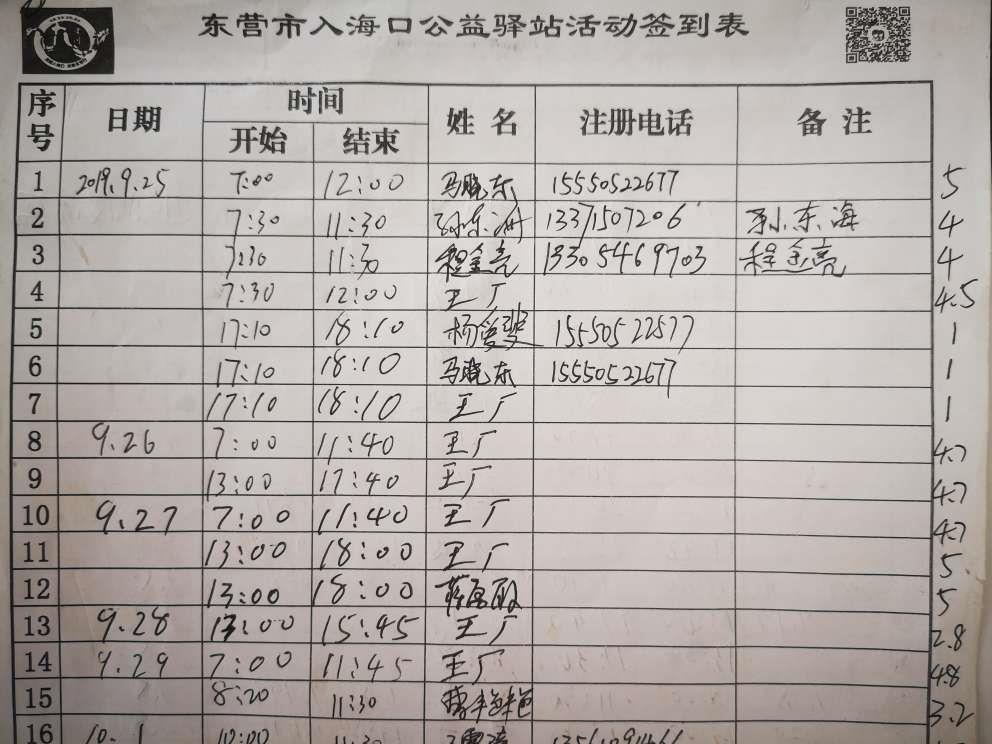 东营市入海口公益驿站活动签到表
序号 日期 时间 姓名 注册电话 备注
开始 结束
1 2019.9.25 7:00 12:00 马晓东 15550522677 5
2 7:30 11:30 孙东 13371507206 孙东海 4
3 7:30 11:30 程金亮 13305469703 程金亮 4
4 7:30 12:00 王厂 4.5
5 17:10 18:10 杨爱斐 15550522577 1
6 17:10 18:10 马晓东 15550522677 1
7 17:10 18:10 王厂 1
8 9.26 7:00 11:40 王厂 4.7
9 13:00 17:40 王厂 4.7
10 9.27 7:00 11:40 王厂 4.7
11 13:00 18:00 王厂 5
12 13:00 18:00 5
13 9.28 13:00 15:45 王厂 2.8
14 9.29 7:00 11:45 王厂 4.8
15 8:20 11:30 3.2
16 10.1